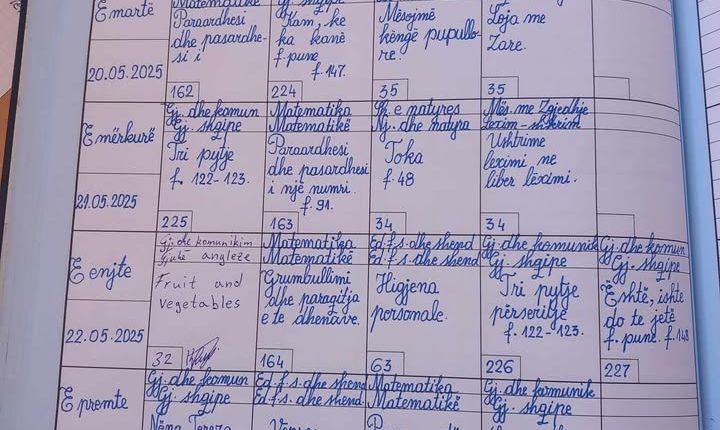 E martë
20.05.2025
Matematikë
Paraardhesi
dhe pasardhe-
si i
162
Gj. shqipe
Kam, ke
ka kanë
f. pune
f. 147.
224
Mësojmë
këngë pupullo-
re.
35
Loja me
Zare.
35
E mërkurë
21.05.2025
Gj. dhe komun
Gj. shqipe
Tri pytje
f. 122-123.
225
Matematika
Matematikë
Paraardhesi
dhe pasardhesi
i një numri.
f. 91.
163
Sh. e natyres
Nj. dhe natyra
Toka
f 48
34
Mës. me Zgjedhje
Lexim-shkrim
Ushtrime
leximi ne
liber lëximi.
34
E enjte
22.05.2025
Gj. dhe komunikim
Gjuhë angleze
Fruit and
vegetables
32
Matematika
Matematikë
Grumbullimi
dhe paraqitja
e te dhenave.
164
Ed.f.s.dhe shend
Ed.f.s.dhe shend
Higjena
personale.
63
Gj. dhe komunik
Gj. shqipe
Tri pytje
përseritje
f. 122-123.
226
Gj. dhe komun
Gj. shqipe
Është, ishte
do te jetë
f. pune. f. 148
227
E premte
Gj. dhe komun
Gj. shqipe
Nëna Tereza
Ed.f.s dhe shend
Ed.f.s. dhe shend
Matematika
Matematikë
Gj. dhe komunik
Gj. shqipe